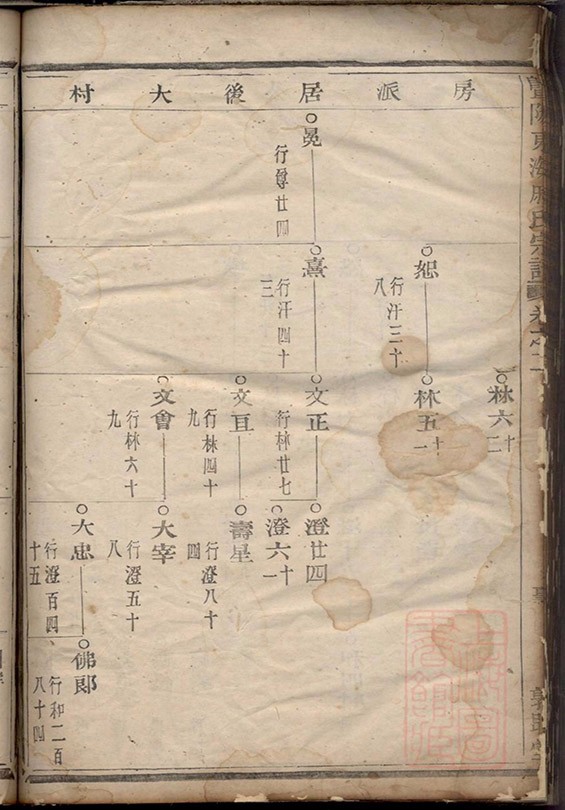 房派居後大村
林六十二
恕
行汙三十
八
林五十一
冕
行尊廿四
熹
行汙四十
三
文正
行林廿七
澄廿四
澄六十一
文亘
行林四十
九
壽星
行澄八十
四
文會
行林六十
九
大宰
行澄五十
八
大忠
行澄百四
十五
佛郎
行和二百
八十四